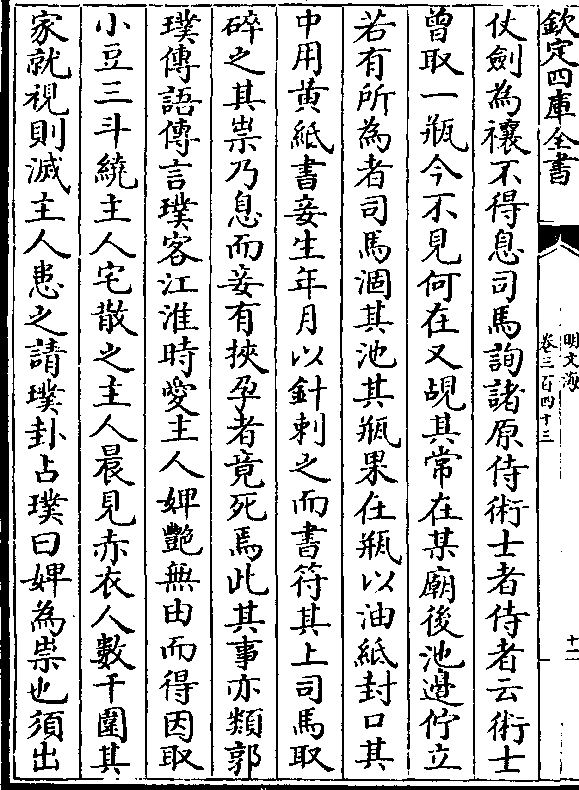 欽定四庫全書
明文海
卷三百四十三
十二
仗劍為禳不得息司馬詢諸原侍術士者侍者云術士
曾取一瓶今不見何在又覘其常在某廟後池邊佇立
若有所為者司馬涸其池其瓶果在瓶以油紙封口其
中用黄紙書妾生年月以針刺之而書符其上司馬取
碎之其祟乃息而妾有挾孕者竟死焉此其事亦類郭
璞傳語傳言璞客江淮時愛主人婢艷無由而得因取
小豆三斗繞主人宅散之主人晨見赤衣人數千圍其
家就視則滅主人患之請璞卦占璞曰婢為祟也須出